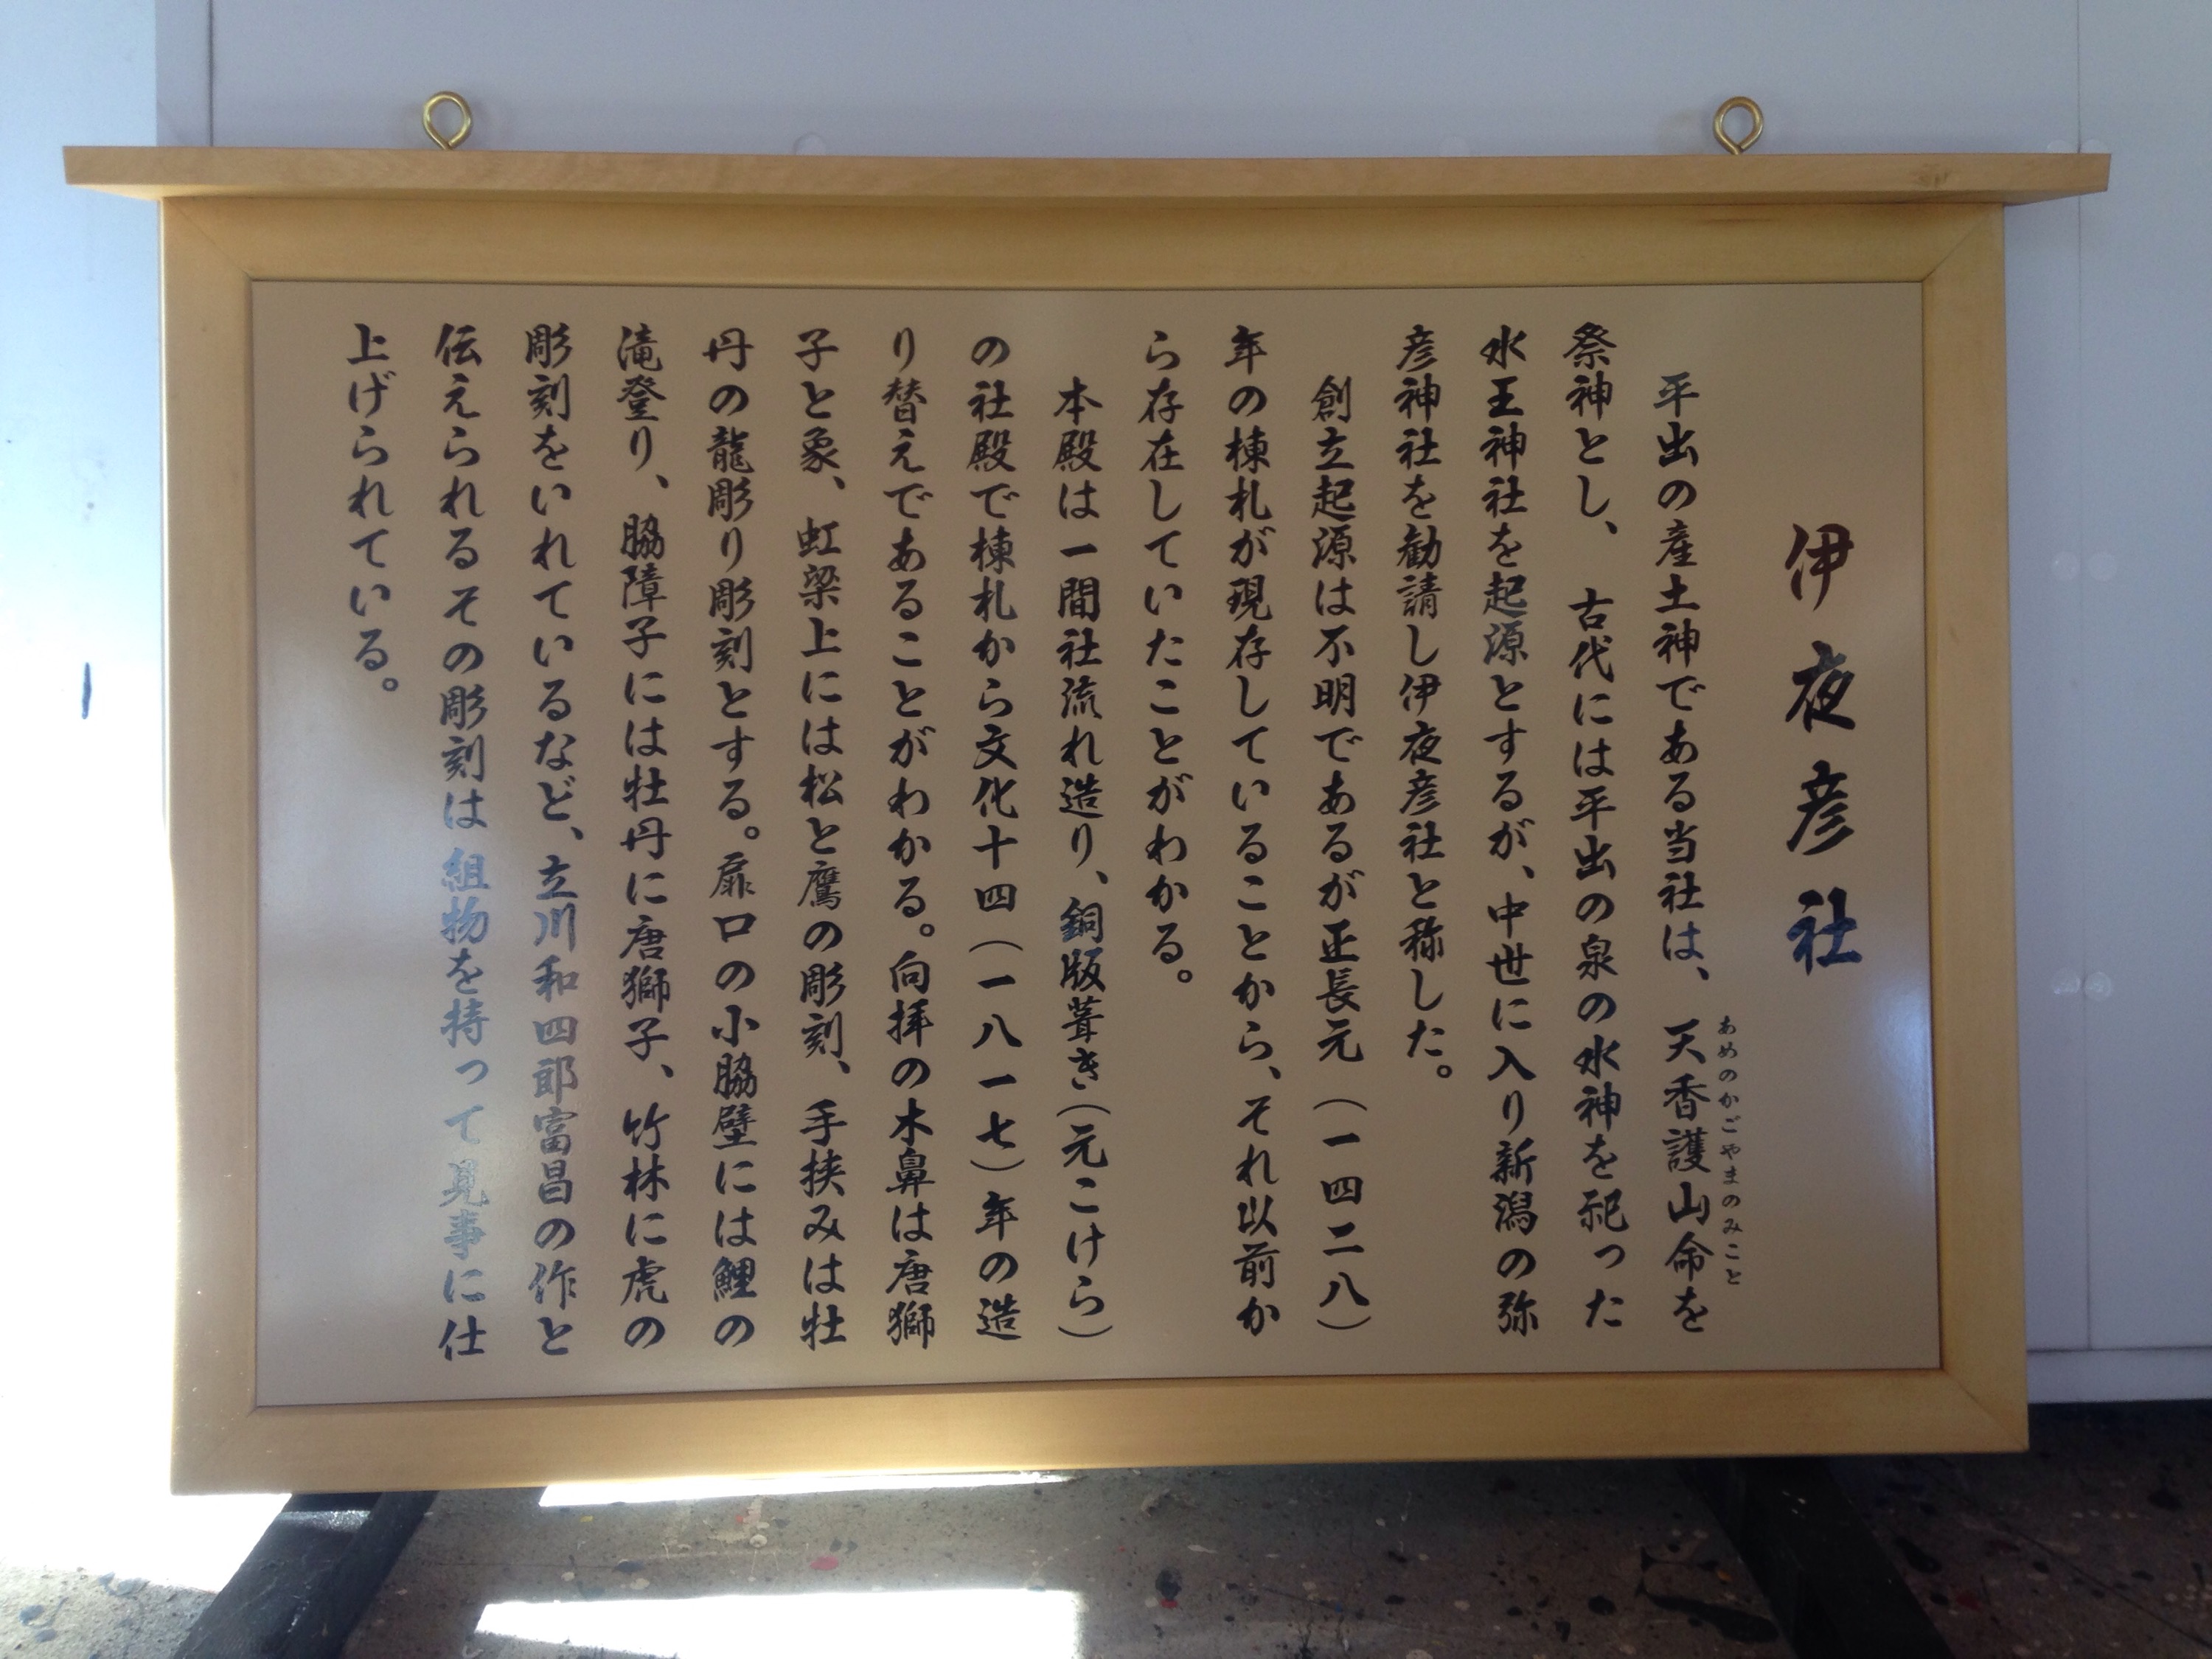 伊夜彦社
平出の産土神である当社は、天香護山命を
あめのかごやまのみこと
祭神とし、古代には平出の泉の水神を祀った
水王神社を起源とするが、中世に入り新潟の弥
彦神社を勧請し伊夜彦社と称した。
創立起源は不明であるが正長元（一四二八）
年の棟札が現存していることから、それ以前か
ら存在していたことがわかる。
本殿は一間社流れ造り、銅版葺き（元こけら）
の社殿で棟札から文化十四（一八一七）年の造
り替えであることがわかる。向拝の木鼻は唐獅
子と象、虹梁上には松と鷹の彫刻、手挟みは牡
丹の龍彫り彫刻とする。扉口の小脇壁には鯉の
滝登り、脇障子には牡丹に唐獅子、竹林に虎の
彫刻をいれているなど、立川和四郎富昌の作と
伝えられるその彫刻は組物を持って見事に仕
上げられている。